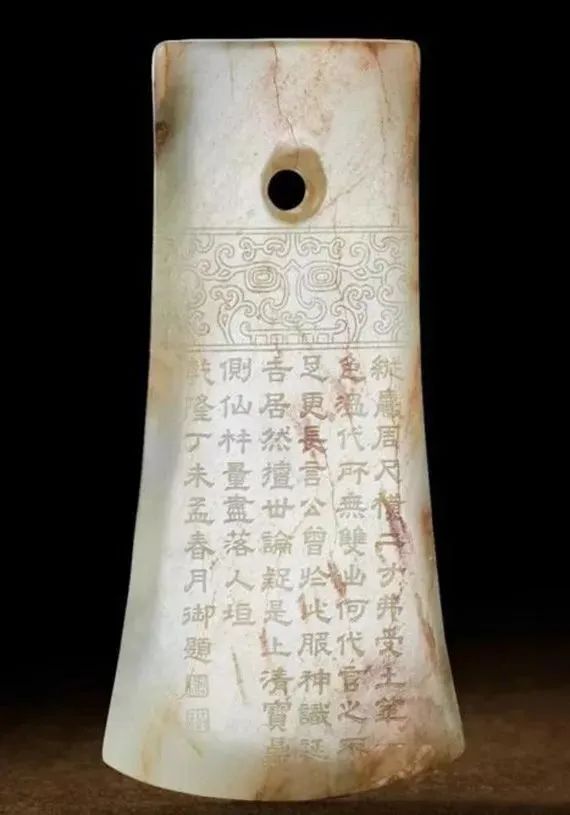 縱周尺橫二寸弗受土華一
色溫代所無雙出何代官之不
足更長言公曾於此服神識延
吉居然擅世論疑是上清寶鼎
側仙量盡落人垣
乾隆丁未孟春月御題